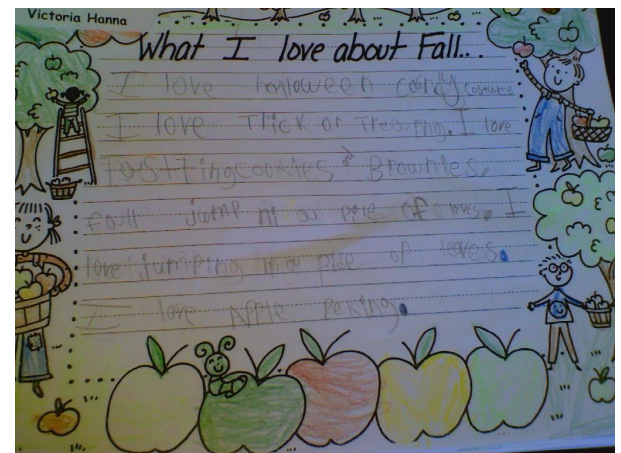 Victoria Hanna
What I love about Fall...
I love halloween candy, costume
I love Trick or Treating. I love
cookies and Brownies.
fall jump in a pile of leves. I
love jumping in a pile of leaves.
I love Apple Peking.